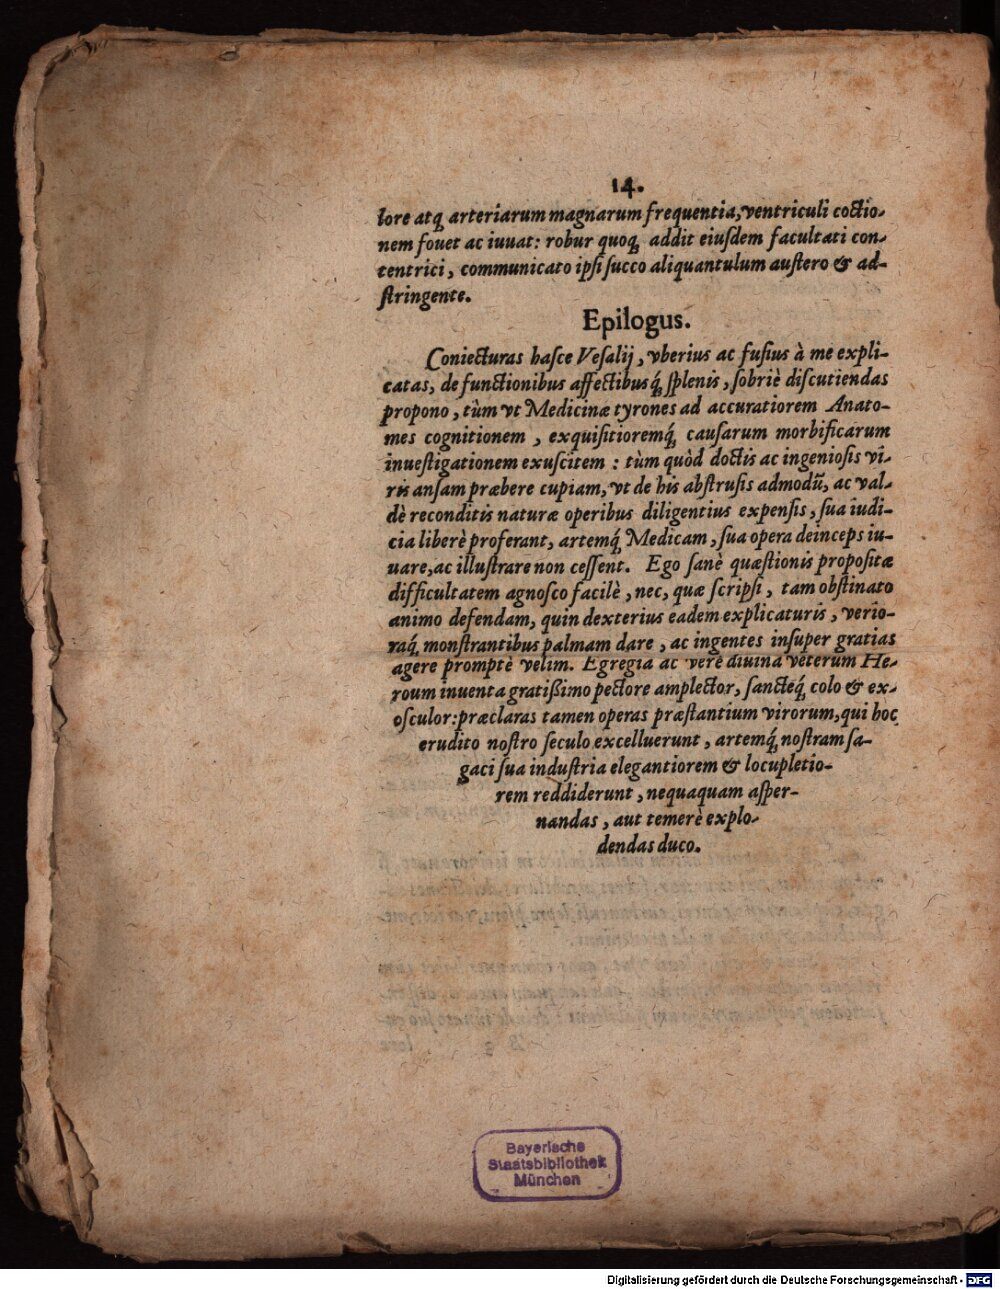 14.
lore atq́ arteriarum magnarum frequentia, ventriculi coctio-
nem fouet ac iuuat: robur quoq́ addit eiuſdem facultati con-
tentrici, communicato ipſi ſucco aliquantulum auſtero & ad-
ſtringente.
Epilogus.
Coniecturas haſce Veſalij, vberius ac fuſius à me expli-
catas, de functionibus affectibusq́ ſplenis, ſobriè diſcutiendas
propono, tùm vt Medicinæ tyrones ad accuratiorem Anato-
mes cognitionem, exquiſitioremq́ cauſarum morbificarum
inueſtigationem exuſcitem: tùm quòd doctis ac ingenioſis vi-
ris anſam præbere cupiam, vt de his abſtruſis admodũ, ac val-
dè reconditis naturæ operibus diligentius expenſis, ſua iudi-
cia liberè proferant, artemq́ Medicam, ſua opera deinceps iu-
uare, ac illuſtrare non ceſſent. Ego ſanè quæſtionis propoſitæ
difficultatem agnoſco facilè, nec, quæ ſcripſi, tam obſtinato
animo defendam, quin dexterius eadem explicaturis, verio-
raq́ monſtrantibus palmam dare, ac ingentes inſuper gratias
agere promptè velim. Egregia ac verè diuina veterum He-
roum inuenta gratißimo pectore amplector, ſancteq́ colo & ex-
oſculor: præclaras tamen operas præſtantium virorum, qui hoc
erudito noſtro ſeculo excelluerunt, artemq́ noſtram ſa-
gaci ſua induſtria elegantiorem & locupletio-
rem reddiderunt, nequaquam aſper-
nandas, aut temerè explo-
dendas duco.
Bayerische
Staatsbibliothek
München
Digitalisierung gefördert durch die Deutsche Forschungsgemeinschaft - DFG